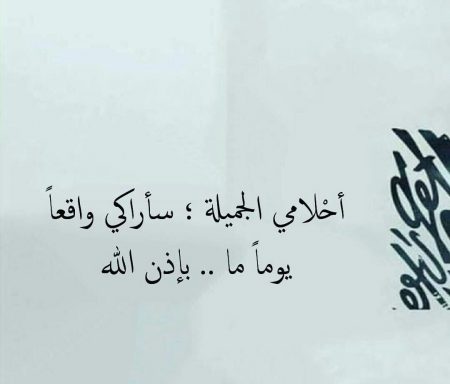 أحْلامي الجميلة ؛ سأراكي واقعاً
يوماً ما .. بإذن الله